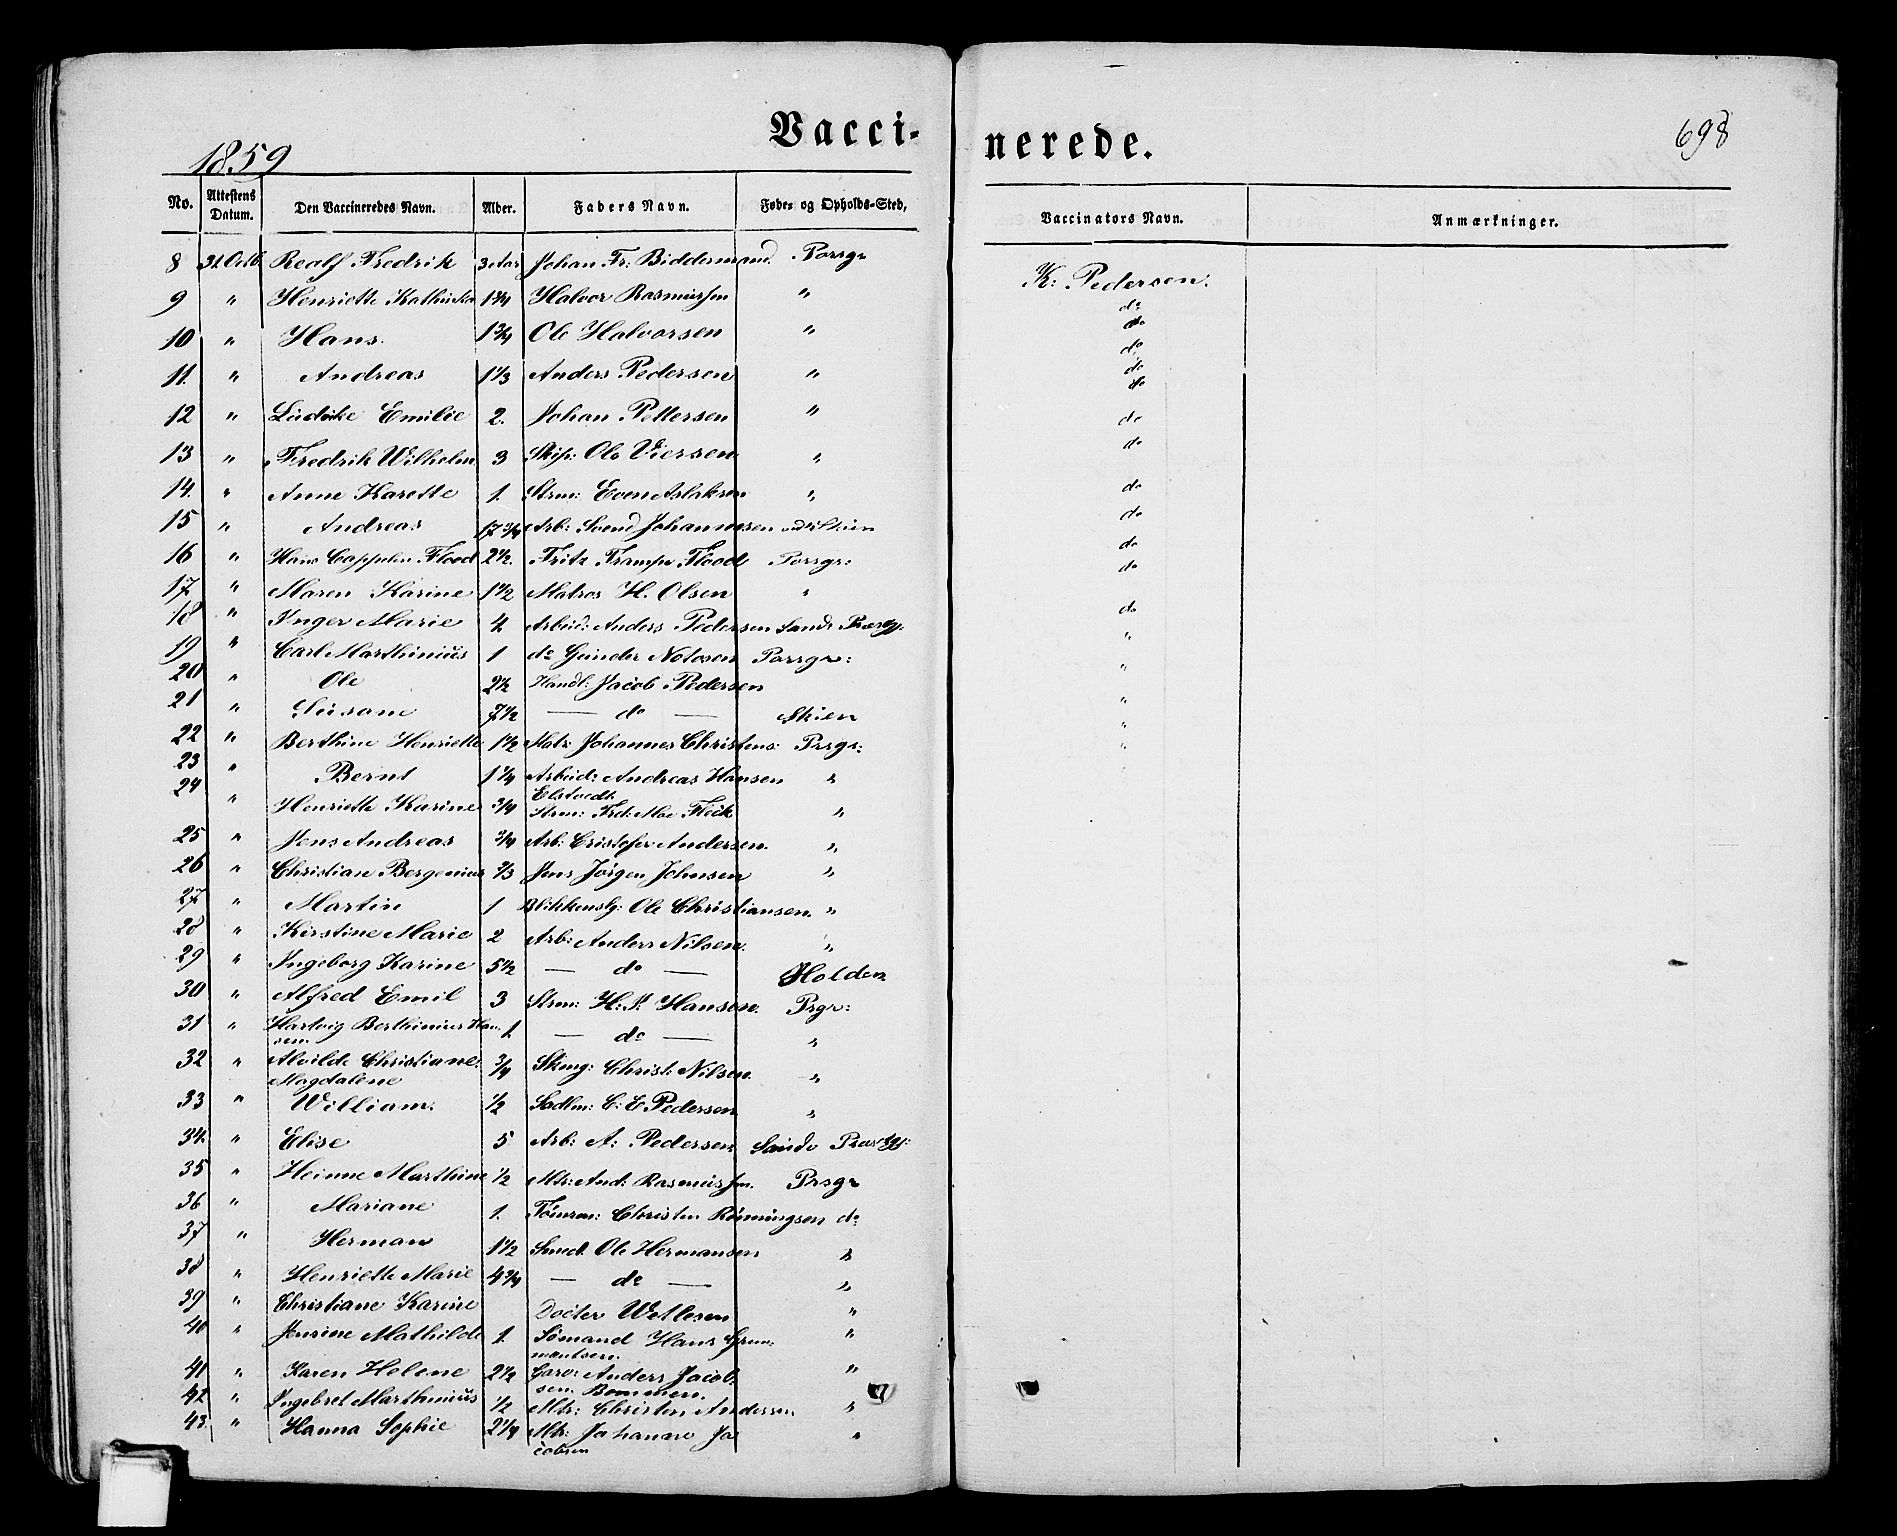 Vacci- nerede.
1859
698
No. Attestens Datum. Den Vaccineredes Navn. Alder. Faders Navn. Føde- og Opholds-Sted, Vaccinators Navn. Anmærkninger.
8 31 Octb. Realf Fredrik 3 Aar Johan Fr: Biddermand. Porsgr K: Pedersen.
9 " Henriette Kathinka 1¾ Halvor Rasmussen " do
10 " Hans. 1¾ Ole Halvorsen " do
11. " Andreas 1⅓ Anders Pedersen " do
12 " Ludvike Emilie 2. Johan Pettersen " do
13 " Fredrik Wilhelm 3 Skip: Ole Viersen " do
14. " Anne Karette 1. Strm: Even Aslaksen " do
15 " Andreas 17¾ Arb: Svend Johannesen Skien do
16 " Hans Cappelen Flood 2½. Fritz Trampe Flood Porsgr: do
17 " Maren Karine 1½ Matros H. Olsen " do
18 " Inger Marie 4 Arbeid: Anders Pedersen Sande Præstgj. do
19 " Carl Marthinius 1 do Gunder Notosen Porsgr: "
20 " Ole 2½ Handl: Jacob Pedersen "
21 " Susane 7½ — do — Skien "
22 " Berthine Henriette 1½ Matr: Johannes Christens: Prsgr: "
23 " Bernt 1¼ Arbeid: Andreas Hansen "
Elstvedt
24 " Henriette Karine ¾ Strm: Frd: Moe Fleck "
25 " Jens Andreas ¾ Arb: Cristofer Andersen. "
26 " Christian Bergenius ⅔ Jens Jörgen Johnsen "
27 " Martin 1 Blikkenslg: Ole Christiansen. "
28 " Kirstine Marie 2 Arb: Anders Nilsen. "
29 " Ingeborg Karine 5½ — do — Holden
30 " Alfred Emil 3 Strm: H: P. Hansen. Prgr:
31 " Hartvig Berthinius Han- 1. — do — "
sen.
32 " Alvilde Christiane ¾ Skmg: Christ: Nilsen. "
Magdalene
33 " William. ½ Sadlm: C: E. Pedersen "
34 " Elise 5 Arb: A: Pedersen Sande Præstgj:
35 " Heinne Marthine ½ Mtr: And: Rasmussen. Prsgr
36 " Mariane 1. Tömrm: Christen Rönningsen do
37 " Herman 1½ Smed. Ole Hermansen "
38 " Henriette Marie 4¾ — do — "
39 " Christiane Karine Docter Wetlesen "
40 " Jensine Mathilde 1. Sömand Hans
41 " Karen Helene 2½ Garv: Anders Jacob- "
sen. Bommen.
42 " Ingebret Marthinius ½ Mtr: Christen Andersen. "
43. " Hanna Sophie 2¼ Mtr: Johannes Ja- "
cobsen